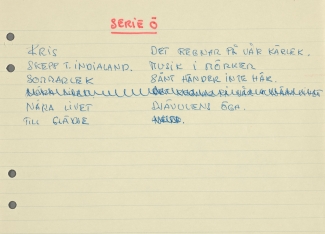 SERIE Ö
KRIS DET REGNAR PÅ VÅR KÄRLEK.
SKEPP T. INDIALAND. MUSIK I MÖRKER
SOMMARLEK SÅNT HÄNDER INTE HÄR.
NÄRA LIVET DJÄVULENS ÖGA.
TILL GLÄDJE